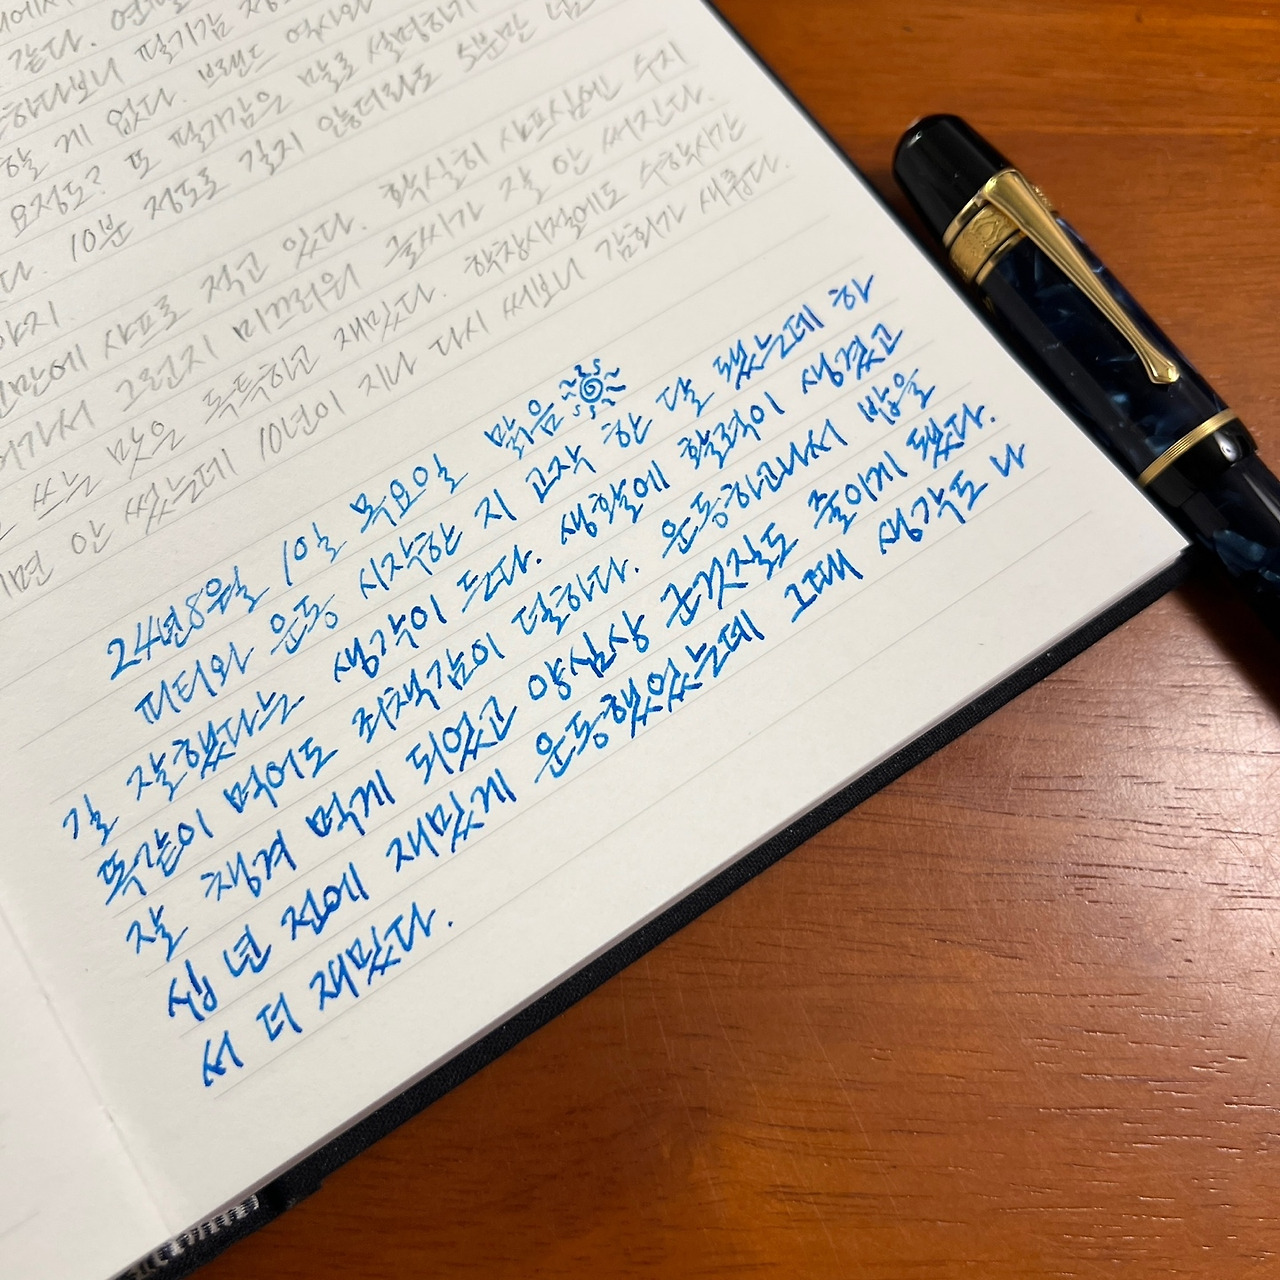 같다.
하다보니 필기감
할 게 없다. 브랜드 역사와
요정도? 또 필기감은 말로 설명하기
다. 10분 정도로 길지 않더라도 5분만
하지
만에 샤프로 적고 있다. 확실히 샤프심엔 수지
가서 그런지 미끄러워 글씨가 잘 안 써진다.
쓰는 맛은 독특하고 재밌다. 학창시절에도 수학시간
면 안 썼는데 10년이 지나 다시 써보니 감회가 새롭다.
24년8월 10일 목요일 맑음
피티와 운동 시작한 지 고작 한 달 됐는데 하
길 잘했다는 생각이 든다. 생활에 활력이 생겼고
똑같이 먹어도 죄책감이 덜하다. 운동하고나서 밥을
잘 챙겨 먹게 되었고 양심상 군것질도 줄이게 됐다.
십 년 전에 재밌게 운동했었는데 그때 생각도 나
서 더 재밌다.